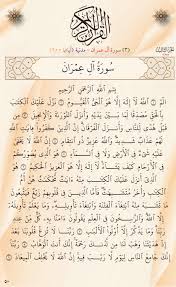 القرآن الكريم
(٣) سورة آل عمران - مدنية (آياتها ٢٠٠)
سُورَةُ آلِ عِمْرَان
بِسْمِ اللَّهِ الرَّحْمَٰنِ الرَّحِيمِ
الٓمٓ ۝١ ٱللَّهُ لَآ إِلَٰهَ إِلَّا هُوَ ٱلْحَىُّ ٱلْقَيُّومُ ۝٢ نَزَّلَ عَلَيْكَ ٱلْكِتَٰبَ
بِٱلْحَقِّ مُصَدِّقًا لِّمَا بَيْنَ يَدَيْهِ وَأَنزَلَ ٱلتَّوْرَىٰةَ وَٱلْإِنجِيلَ ۝٣ مِن
قَبْلُ هُدًى لِّلنَّاسِ وَأَنزَلَ ٱلْفُرْقَانَ إِنَّ ٱلَّذِينَ كَفَرُوا۟ بِـَٔايَٰتِ ٱللَّهِ
لَهُمْ عَذَابٌ شَدِيدٌ وَٱللَّهُ عَزِيزٌ ذُو ٱنتِقَامٍ ۝٤ إِنَّ ٱللَّهَ لَا يَخْفَىٰ عَلَيْهِ
شَىْءٌ فِى ٱلْأَرْضِ وَلَا فِى ٱلسَّمَآءِ ۝٥ هُوَ ٱلَّذِى يُصَوِّرُكُمْ
فِى ٱلْأَرْحَامِ كَيْفَ يَشَآءُ لَآ إِلَٰهَ إِلَّا هُوَ ٱلْعَزِيزُ ٱلْحَكِيمُ ۝٦ هُوَ ٱلَّذِىٓ
أَنزَلَ عَلَيْكَ ٱلْكِتَٰبَ مِنْهُ ءَايَٰتٌ مُّحْكَمَٰتٌ هُنَّ أُمُّ ٱلْكِتَٰبِ
وَأُخَرُ مُتَشَٰبِهَٰتٌ فَأَمَّا ٱلَّذِينَ فِى قُلُوبِهِمْ زَيْغٌ فَيَتَّبِعُونَ
مَا تَشَٰبَهَ مِنْهُ ٱبْتِغَآءَ ٱلْفِتْنَةِ وَٱبْتِغَآءَ تَأْوِيلِهِۦ وَمَا يَعْلَمُ تَأْوِيلَهُۥٓ
إِلَّا ٱللَّهُ وَٱلرَّٰسِخُونَ فِى ٱلْعِلْمِ يَقُولُونَ ءَامَنَّا بِهِۦ كُلٌّ مِّنْ عِندِ
رَبِّنَا وَمَا يَذَّكَّرُ إِلَّآ أُو۟لُوا۟ ٱلْأَلْبَٰبِ ۝٧ رَبَّنَا لَا تُزِغْ قُلُوبَنَا
بَعْدَ إِذْ هَدَيْتَنَا وَهَبْ لَنَا مِن لَّدُنكَ رَحْمَةً إِنَّكَ أَنتَ ٱلْوَهَّابُ ۝٨
رَبَّنَآ إِنَّكَ جَامِعُ ٱلنَّاسِ لِيَوْمٍ لَّا رَيْبَ فِيهِ إِنَّ ٱللَّهَ لَا يُخْلِفُ ٱلْمِيعَادَ ۝٩
٥٠